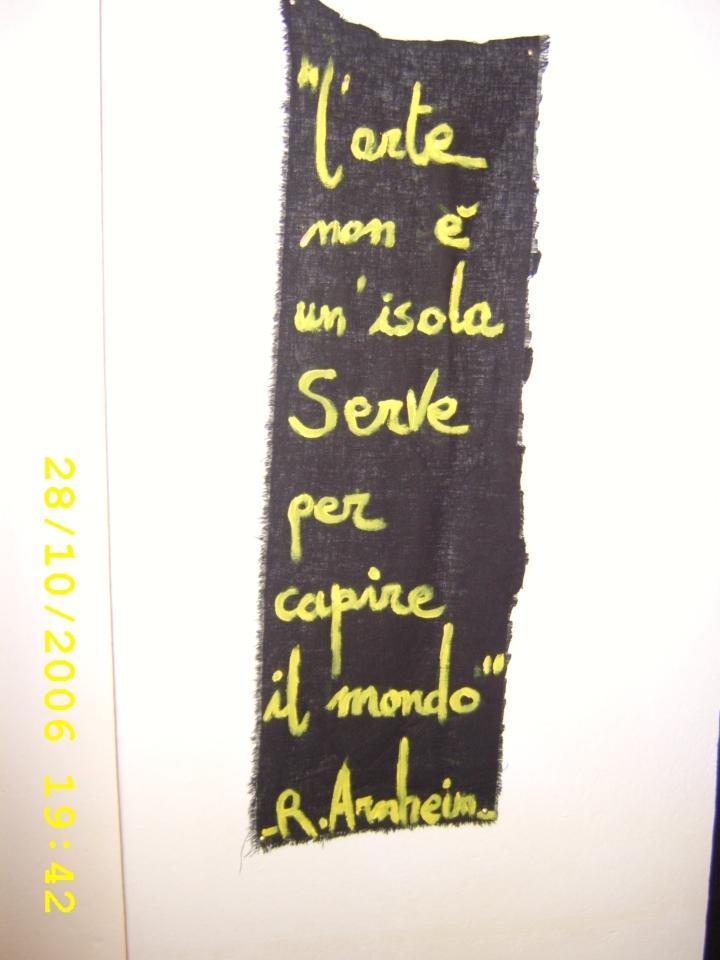 "l'arte
non è
un'isola
Serve
per
capire
il mondo"
-R. Arnheim-
28/10/2006 19:42